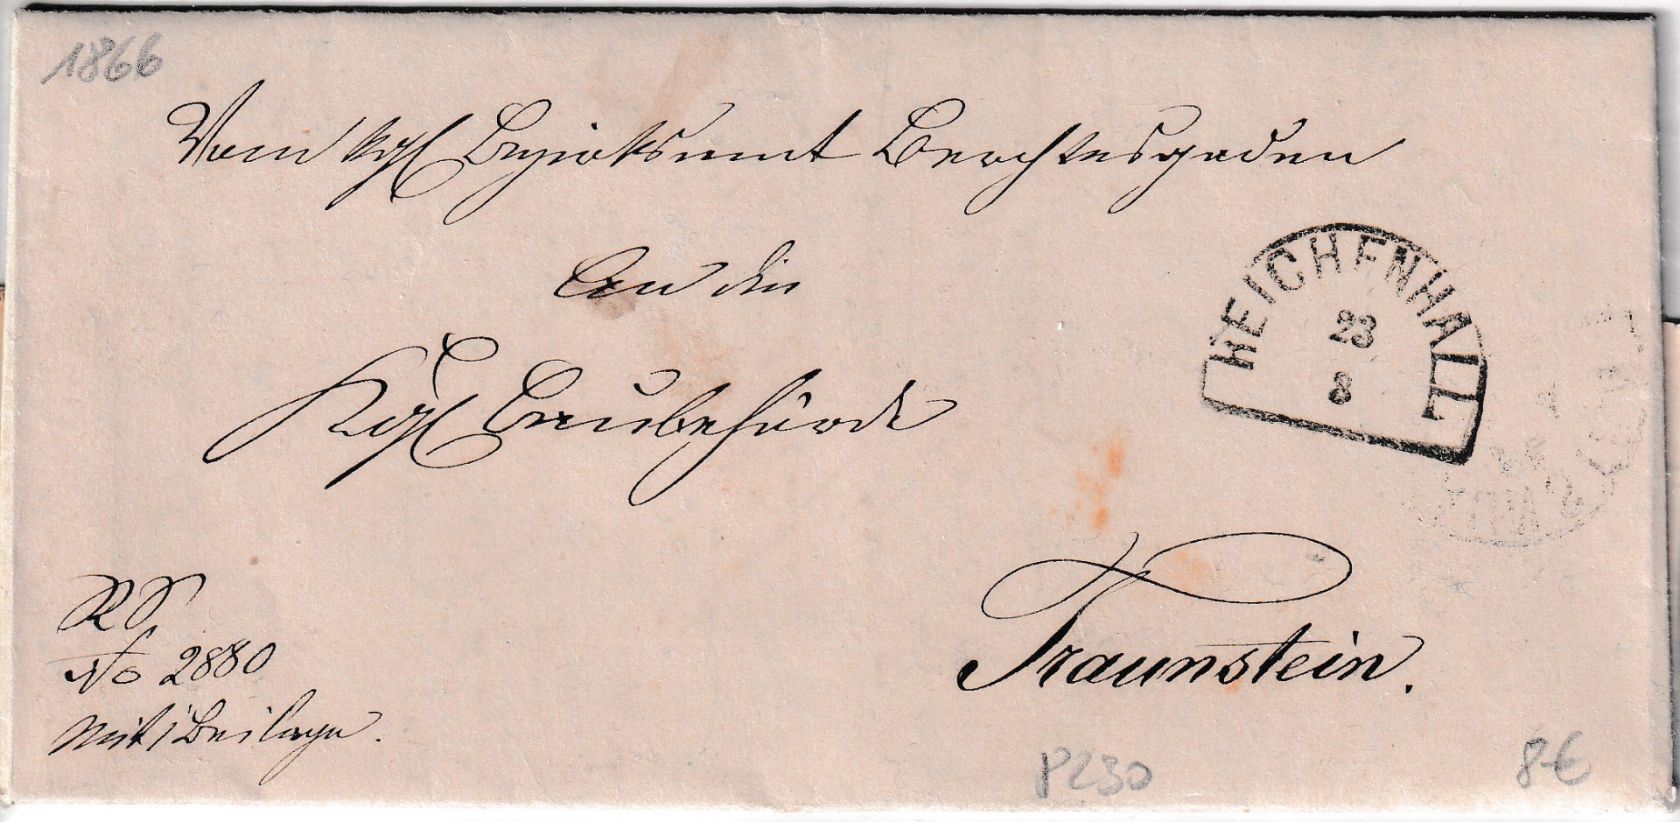 1866
Vom kgl Bezirksamt Berchtesgaden
An die
Kgl Baubehörde
REICHENHALL
23
8
Traunstein.
RS
No 2880
mit 1 Beilage.
P230
8€